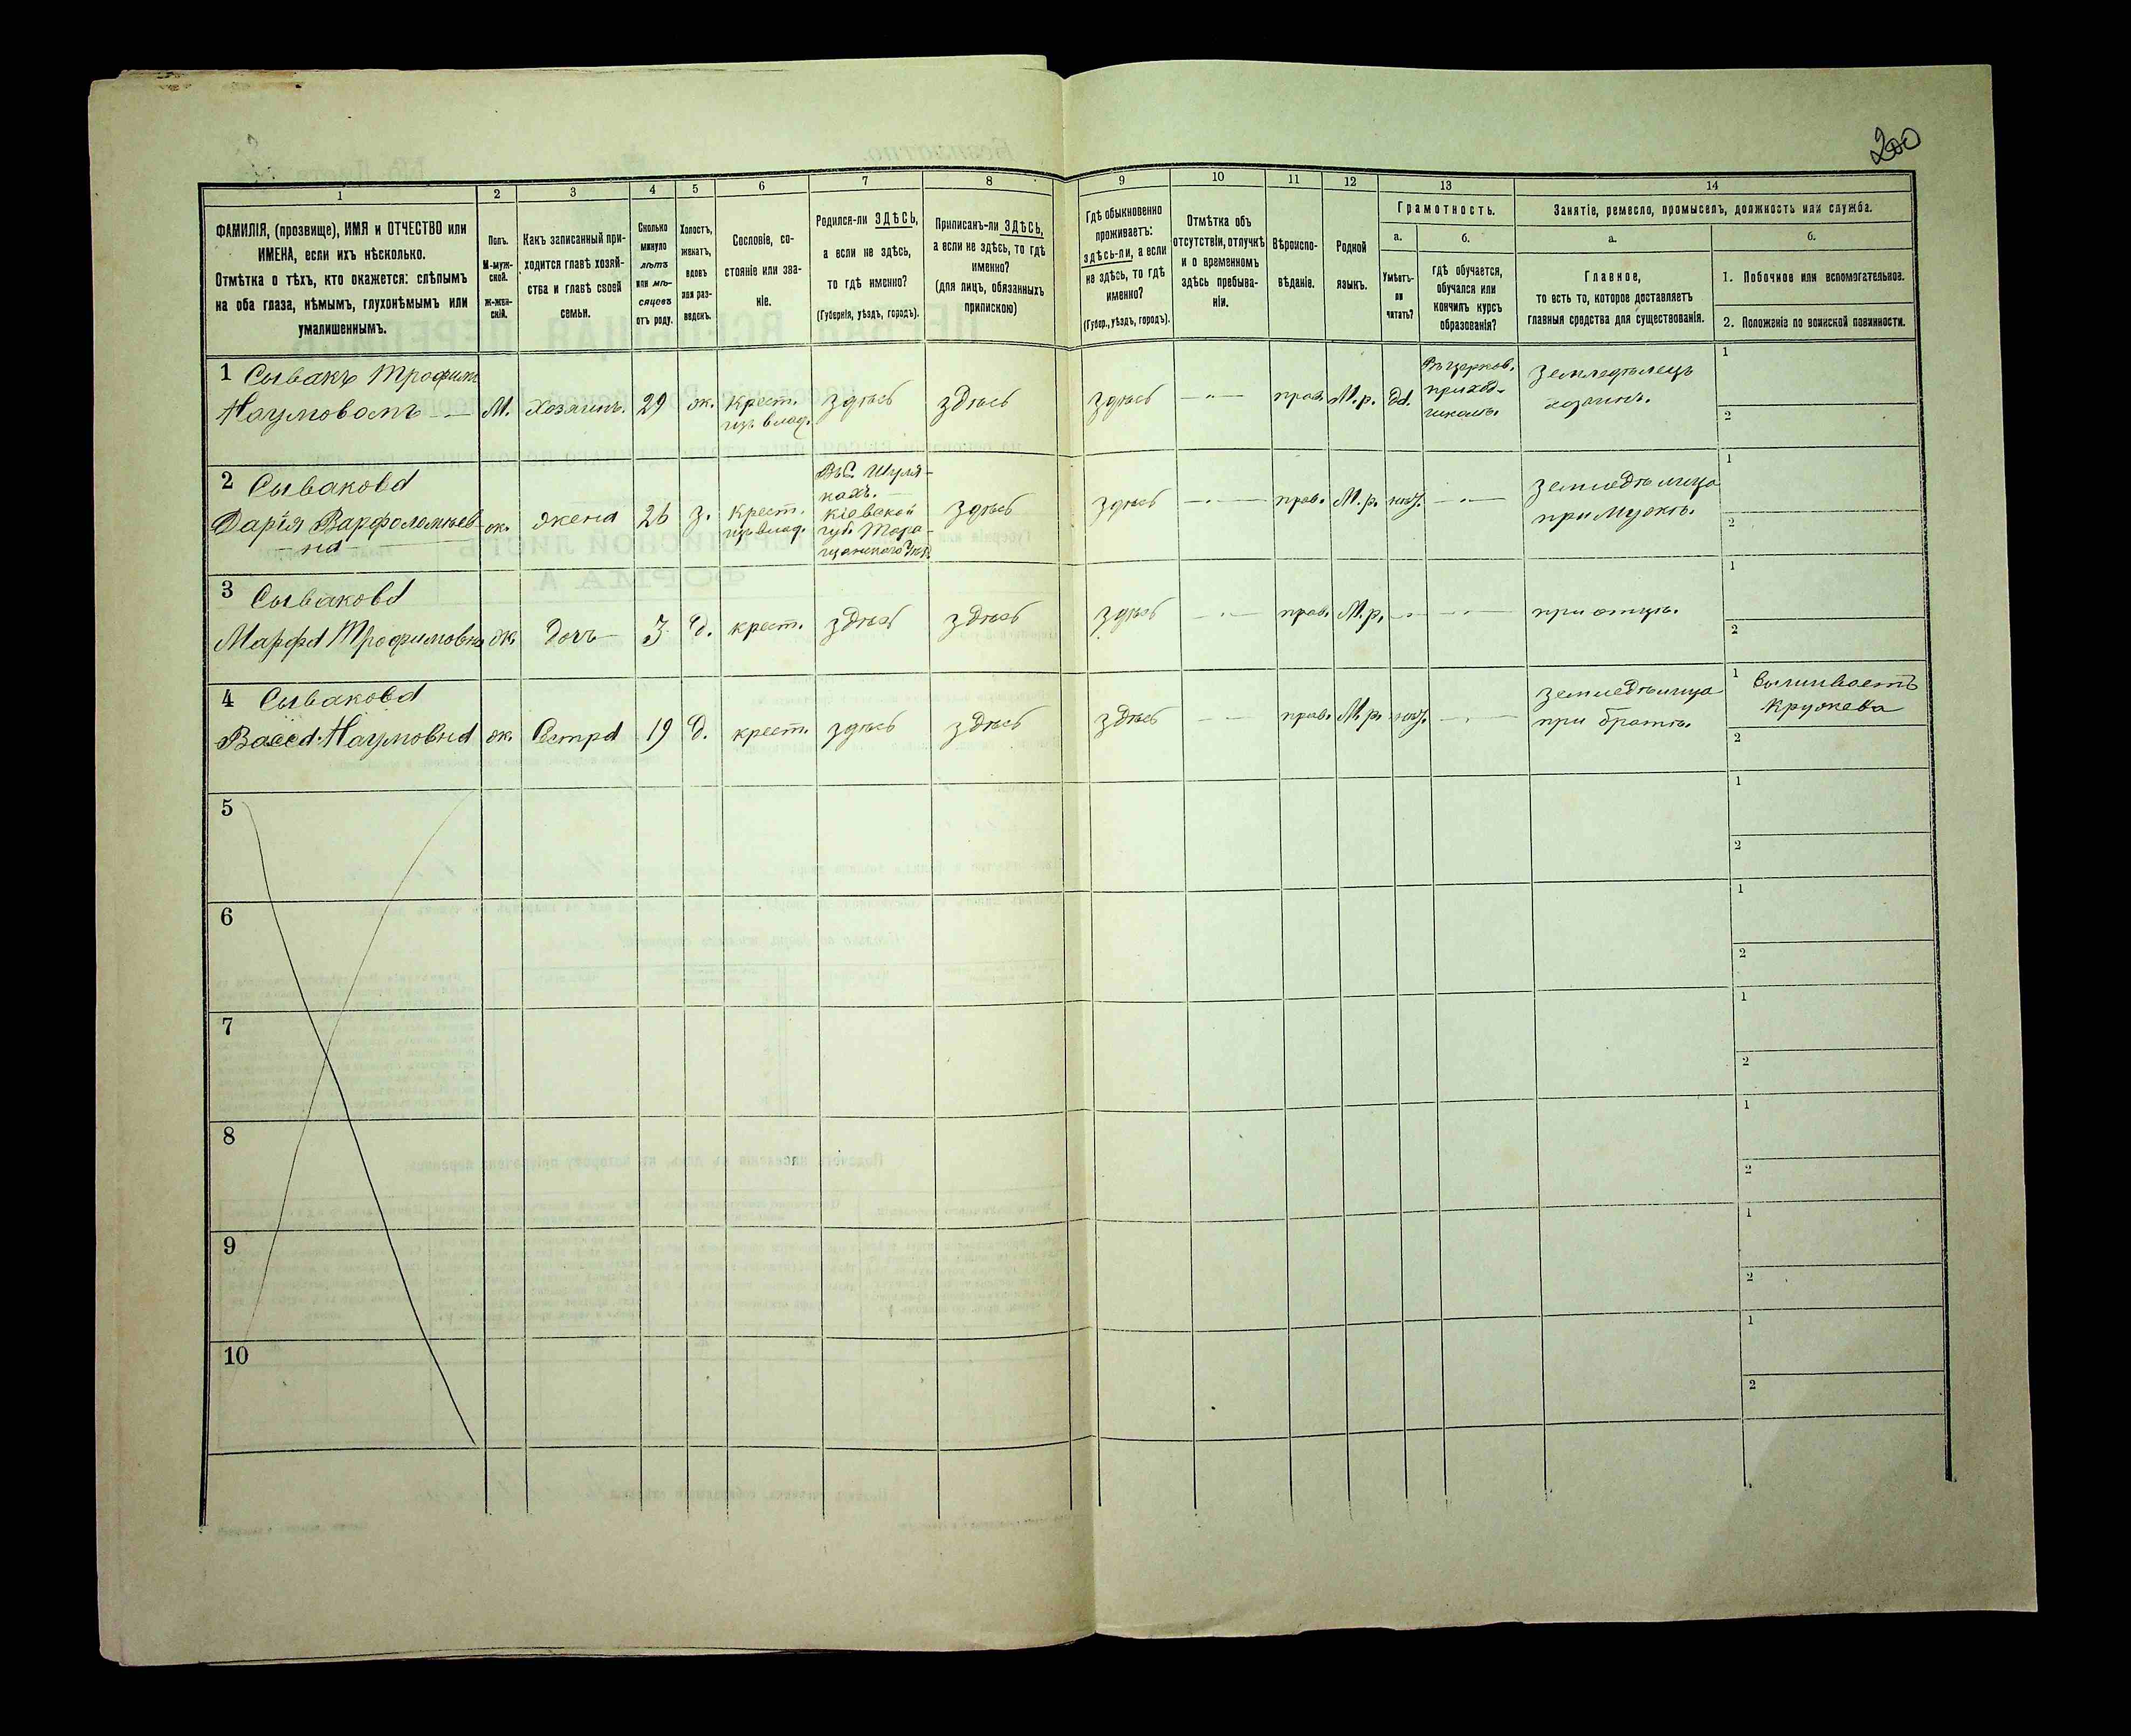 200
1
2
3
4
5
6
7
8
9
10
11
12
13
14
ФАМИЛІЯ, (прозвище), ИМЯ и ОТЧЕСТВО или
ИМЕНА, если ихъ нѣсколько.
Отмѣтка о тѣхъ, кто окажется: слѣпымъ
на оба глаза, нѣмымъ, глухонѣмымъ или
умалишеннымъ.
Полъ.
М-муж-
ской.
Ж-жен-
скій.
Какъ записанный при-
ходится главѣ хозяй-
ства и главѣ своей
семьи.
Сколько
минуло
лѣтъ
или мѣ-
сяцевъ
отъ роду.
Холостъ,
женатъ,
вдовъ
или раз-
веденъ.
Сословіе, со-
стояніе или зва-
ніе.
Родился-ли ЗДѢСЬ,
а если не здѣсь,
то гдѣ именно?
(Губернія, уѣздъ, городъ).
Приписанъ-ли ЗДѢСЬ,
а если не здѣсь, то гдѣ
именно?
(для лицъ, обязанныхъ
припискою)
Гдѣ обыкновенно
проживаетъ:
здѣсь-ли, а если
не здѣсь, то гдѣ
именно?
(Губер., уѣздъ, городъ).
Отмѣтка объ
отсутствіи, отлучкѣ
и о временномъ
здѣсь пребыва-
ніи.
Вѣроиспо-
вѣданіе.
Родной
языкъ.
Грамотность.
а.
б.
Умѣетъ-
ли
читать?
Гдѣ обучается,
обучался или
кончилъ курсъ
образованія?
Занятіе, ремесло, промыселъ, должность или служба.
а.
б.
Главное,
то есть то, которое доставляетъ
главныя средства для существованія.
1. Побочное или вспомогательное.
2. Положеніе по воинской повинности.
1 Сывакъ Трофимъ
Наумовъ
М. Хозяинъ. 29 ж. Крест. здѣсь здѣсь здѣсь прав. М.р. Да.
изъ влад.
Въ церков.
приход.
Земледѣлецъ
хозяинъ.
1
2
2 Сывакова
Дарія Варфоломѣев-
на
ж. жена 26 з. Крест.
изъ влад.
Въ С. Шуля-
кахъ.
Кіевской
губ. Тара-
щанскаго
здѣсь здѣсь прав. М.р. нѣт.
Земледѣлица
при Мужѣ.
1
2
3 Сывакова
Марфа Трофимовна ж. Дочь 3 д. крест. здѣсь здѣсь здѣсь прав. М.р. при отцѣ.
1
2
4 Сывакова
Васса Наумовна ж. Сестра 19 д. крест. здѣсь здѣсь здѣсь прав. М.р. нѣт.
Земледѣлица
при братѣ.
1 Вышиваетъ
кружева
2
5
1
2
6
1
2
7
1
2
8
1
2
9
1
2
10
1
2